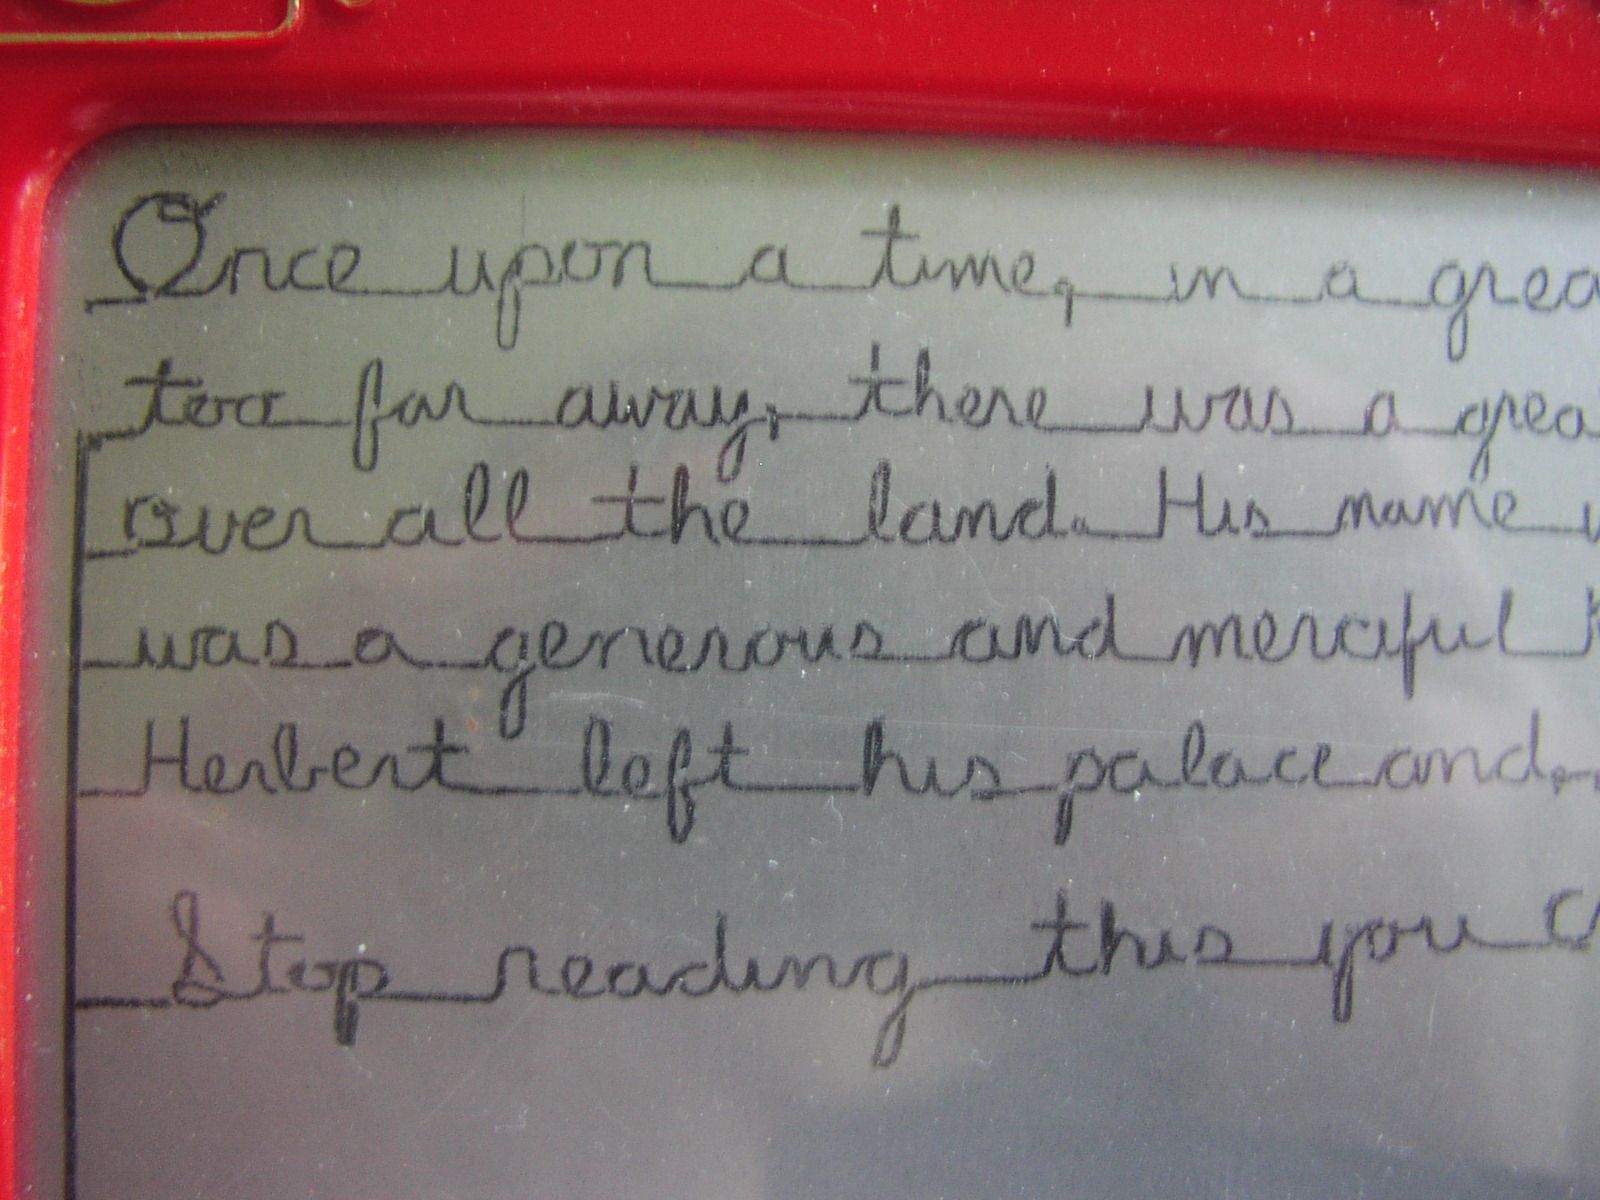 Once upon a time, in a grea
too far away, there was a grea
over all the land. His name
was a generous and merciful
Herbert left his palace and
Stop reading this you